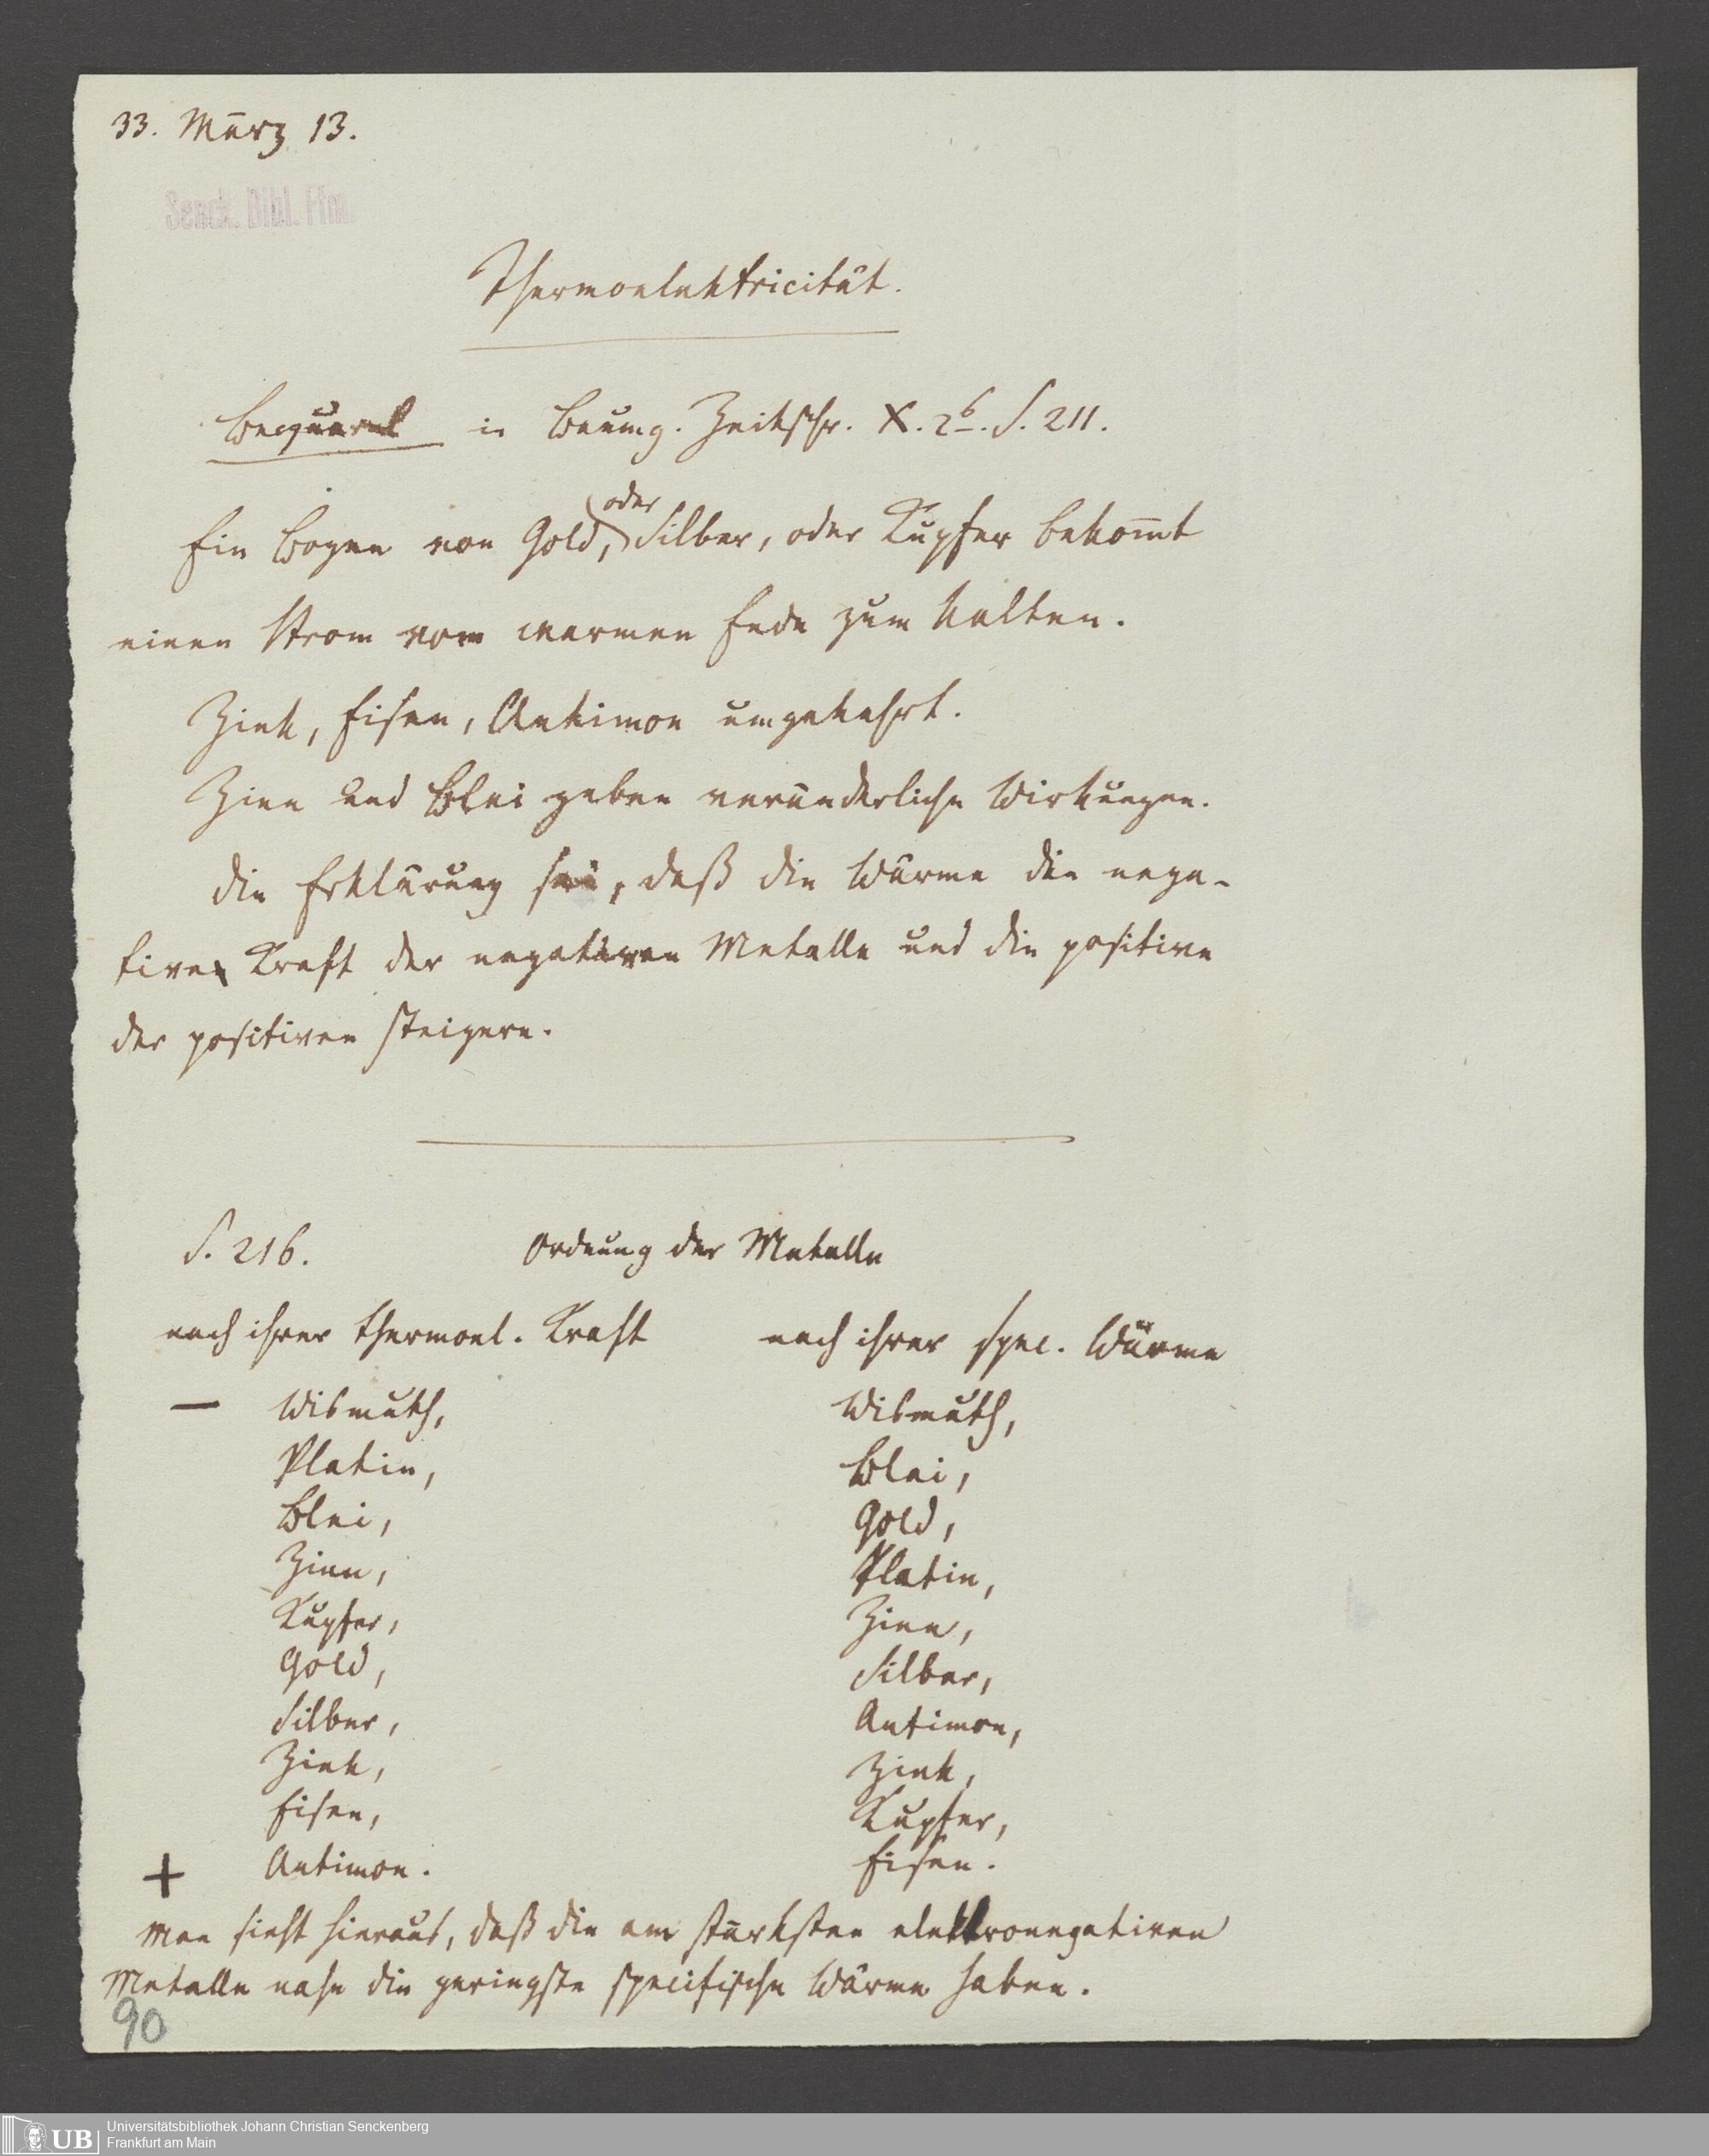 33. März 13.
Senck. Bibl. Ffm.
Thermoelektricität.
Becquerel in Baumg. Zeitschr. X. 2b. S. 211.
oder
Ein Bogen von Gold, Silber, oder Kupfer bekom̅t
einen Strom vom warmen Ende zum kalten.
Zink, Eisen, Antimon umgekehrt.
Zinn und Blei geben veränderliche Wirkungen.
Die Erklärung sei, daß die Wärme die nega-
tive Kraft der negativen Metalle und die positive
der positiven steigere.
S. 216. Ordnung der Metalle
nach ihrer thermoel. Kraft nach ihrer spec. Wärme
— Wismuth, Wismuth,
Platin, Blei,
Blei, Gold,
Zinn, Platin,
Kupfer, Zinn,
Gold, Silber,
Silber, Antimon,
Zink, Zink,
Eisen, Kupfer,
+ Antimon. Eisen.
Man sieht hieraus, daß die am stärksten elektronegativen
Metalle nahe die geringste specifische Wärme haben.
90
UB Universitätsbibliothek Johann Christian Senckenberg
Frankfurt am Main